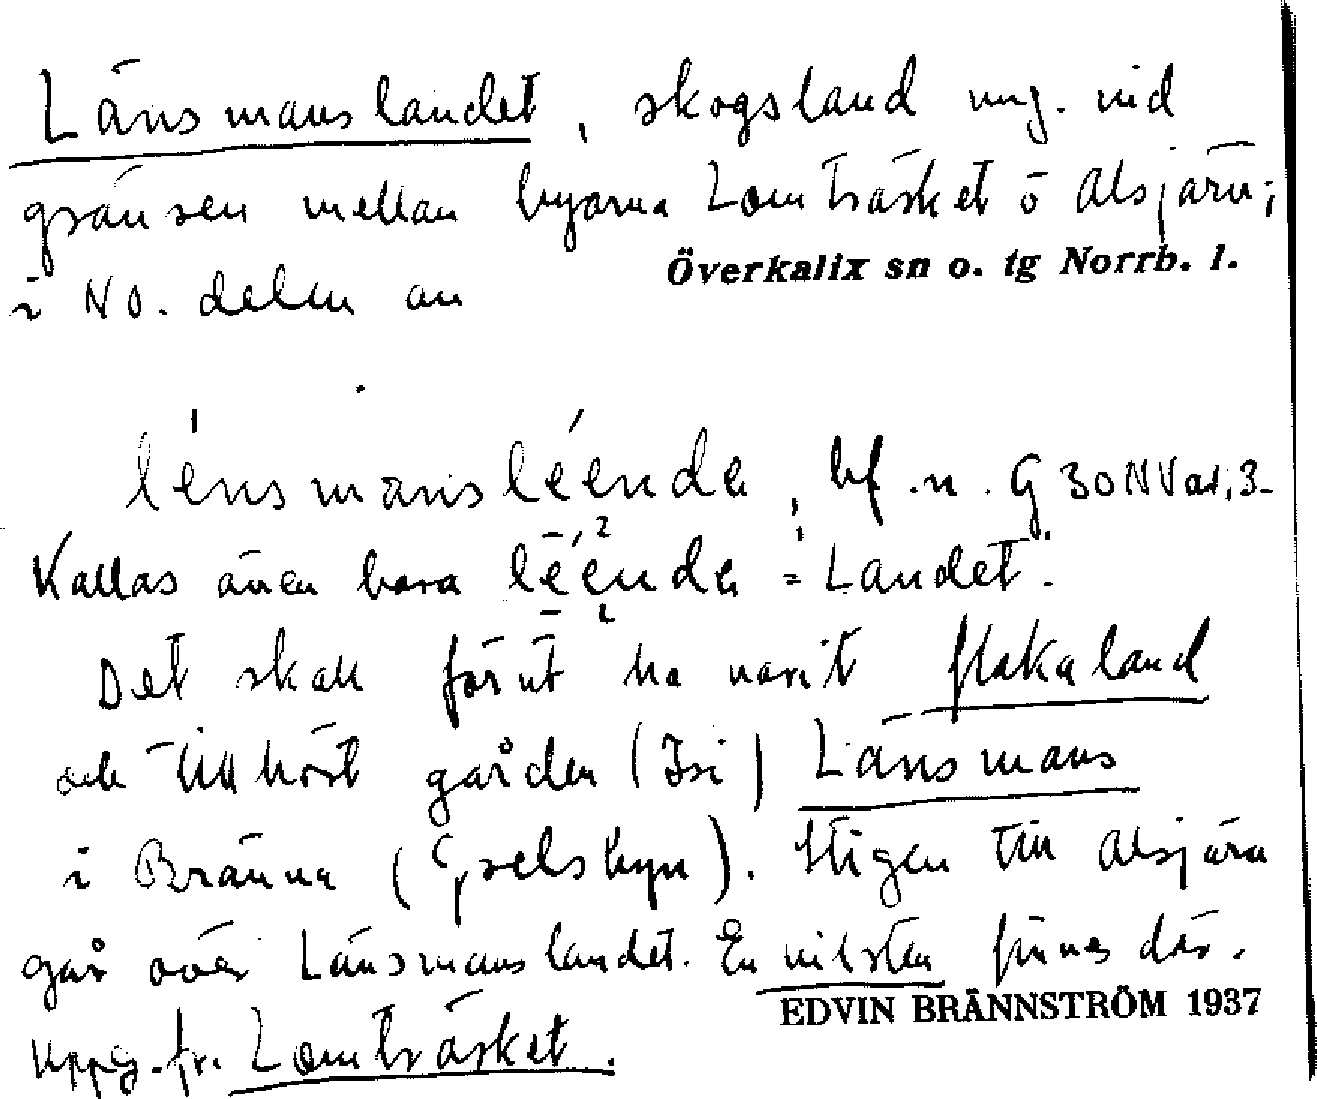 Länsmanslandet, skogsland ung. vid
gränsen mellan byarna Lomträsket o Alsjärv;
i NO. delen av
Överkalix sn o. tg Norrb. l.
lénsmansléenda, bf. n. G 30 NV
Kallas även bara léenda = "Landet".
Det skall förut ha varit flakaland
och tillhört gården Länsmans
i Bränna (Gyselsbyn). Stigen till Alsjärv
går över Länsmanslandet. En vilsten finnes där.
Uppg. fr. Lomträsket.
EDVIN BRÄNNSTRÖM 1937